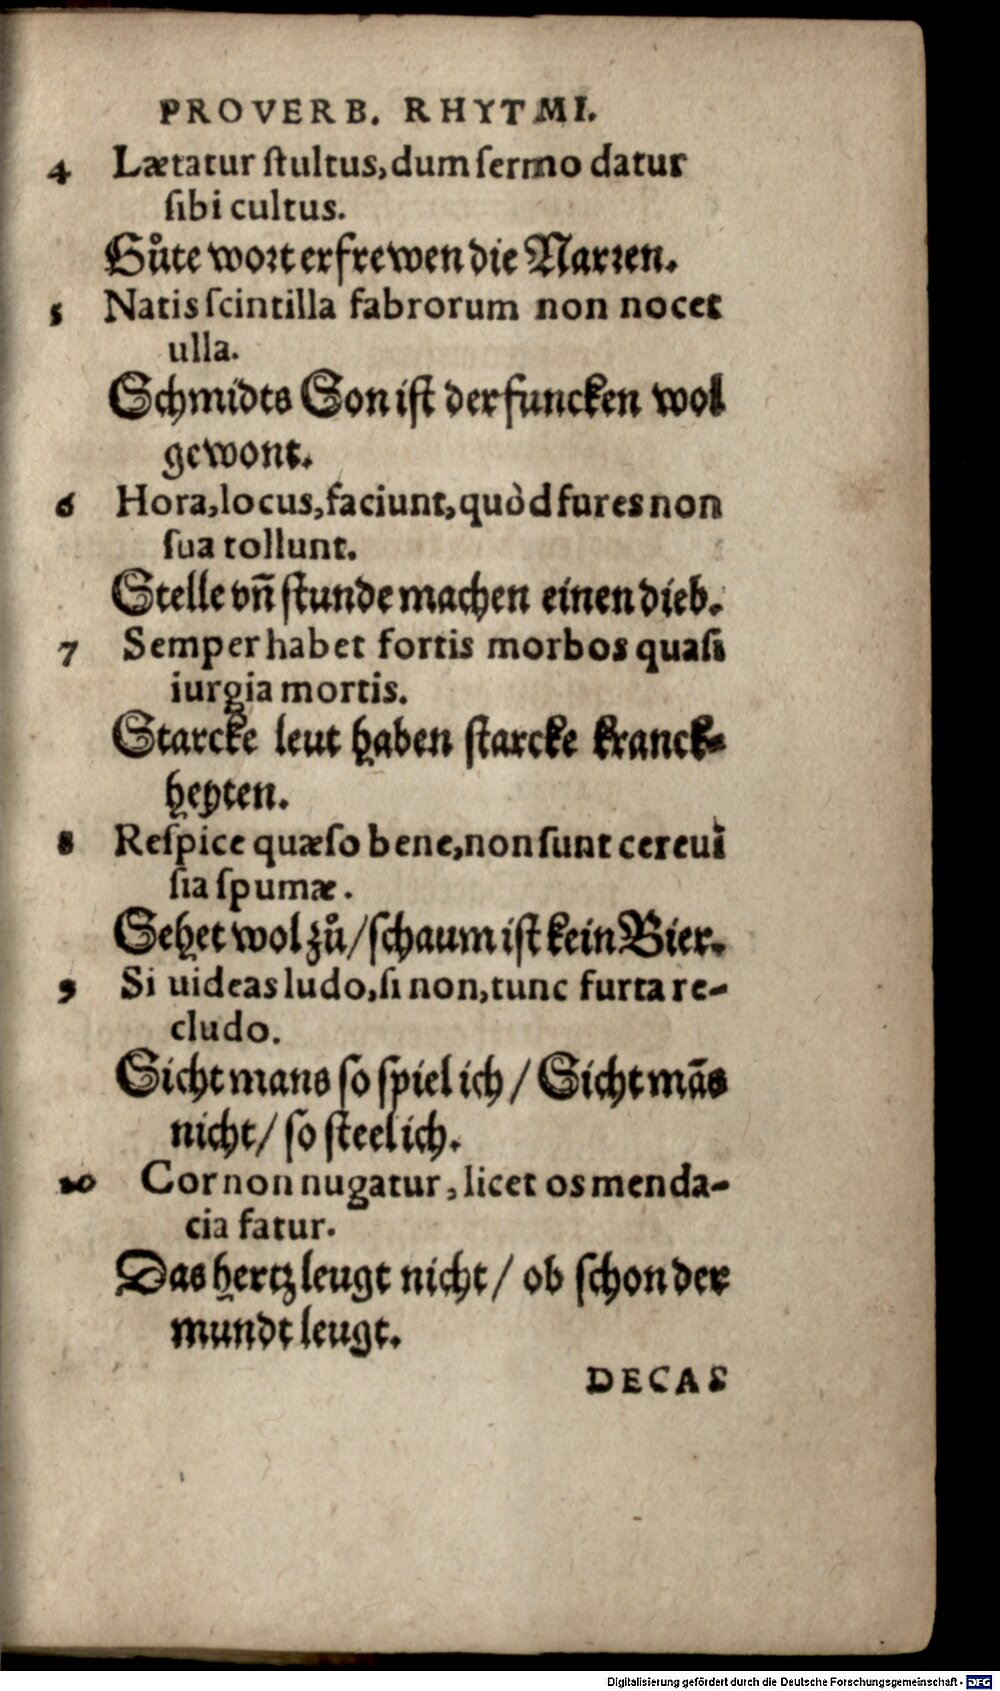 PROVERB. RHYTMI.
4 Lætatur ſtultus, dum ſermo datur
ſibi cultus.
Gůte wort erfrewen die Narren.
5 Natis ſcintilla fabrorum non nocet
ulla.
Schmidts Son iſt der funcken wol
gewont.
6 Hora, locus, faciunt, quòd fures non
ſua tollunt.
Stelle vñ ſtunde machen einen dieb.
7 Semper habet fortis morbos quaſi
iurgia mortis.
Starcke leut haben ſtarcke kranck⸗
heyten.
8 Reſpice quæſo bene, non ſunt cereui
ſia ſpumæ.
Sehet wol zů / ſchaum iſt kein Bier.
9 Si uideas ludo, ſi non, tunc furta re-
cludo.
Sicht mans ſo ſpiel ich / Sicht mãs
nicht / ſo ſteel ich.
10 Cor non nugatur, licet os menda-
cia fatur.
Das hertz leugt nicht / ob ſchon der
mundt leugt.
DECAS
Digitalisierung gefördert durch die Deutsche Forschungsgemeinschaft - DFG